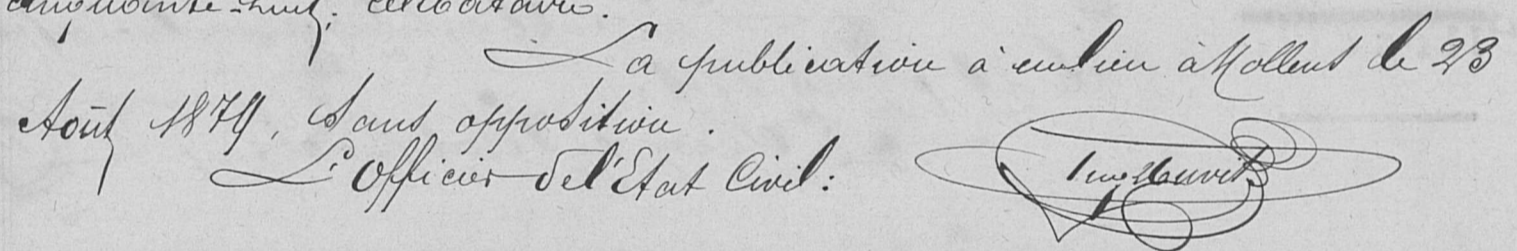 cinquante-huit; célibataire.
La publication à eu lieu à Mollens le 23
Août 1879, Sans opposition.
L'Officier de l'Etat Civil: